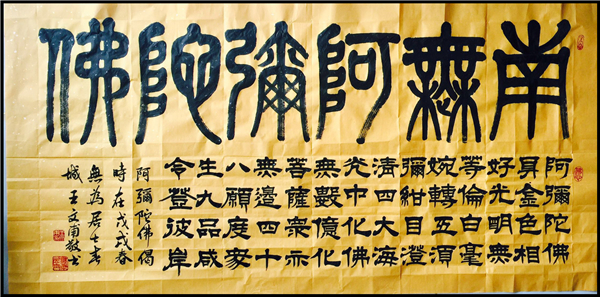 南無阿彌陀佛
阿彌陀佛
身金色相
好光明無
等倫白毫
婉轉五須
彌紺目澄
清四大海
光中化佛
無數億化
菩薩眾亦
無邊四十
八願度眾
生九品咸
令登彼岸
阿彌陀佛偈
時在戊戌春
無為居士青
城王文甫敬书